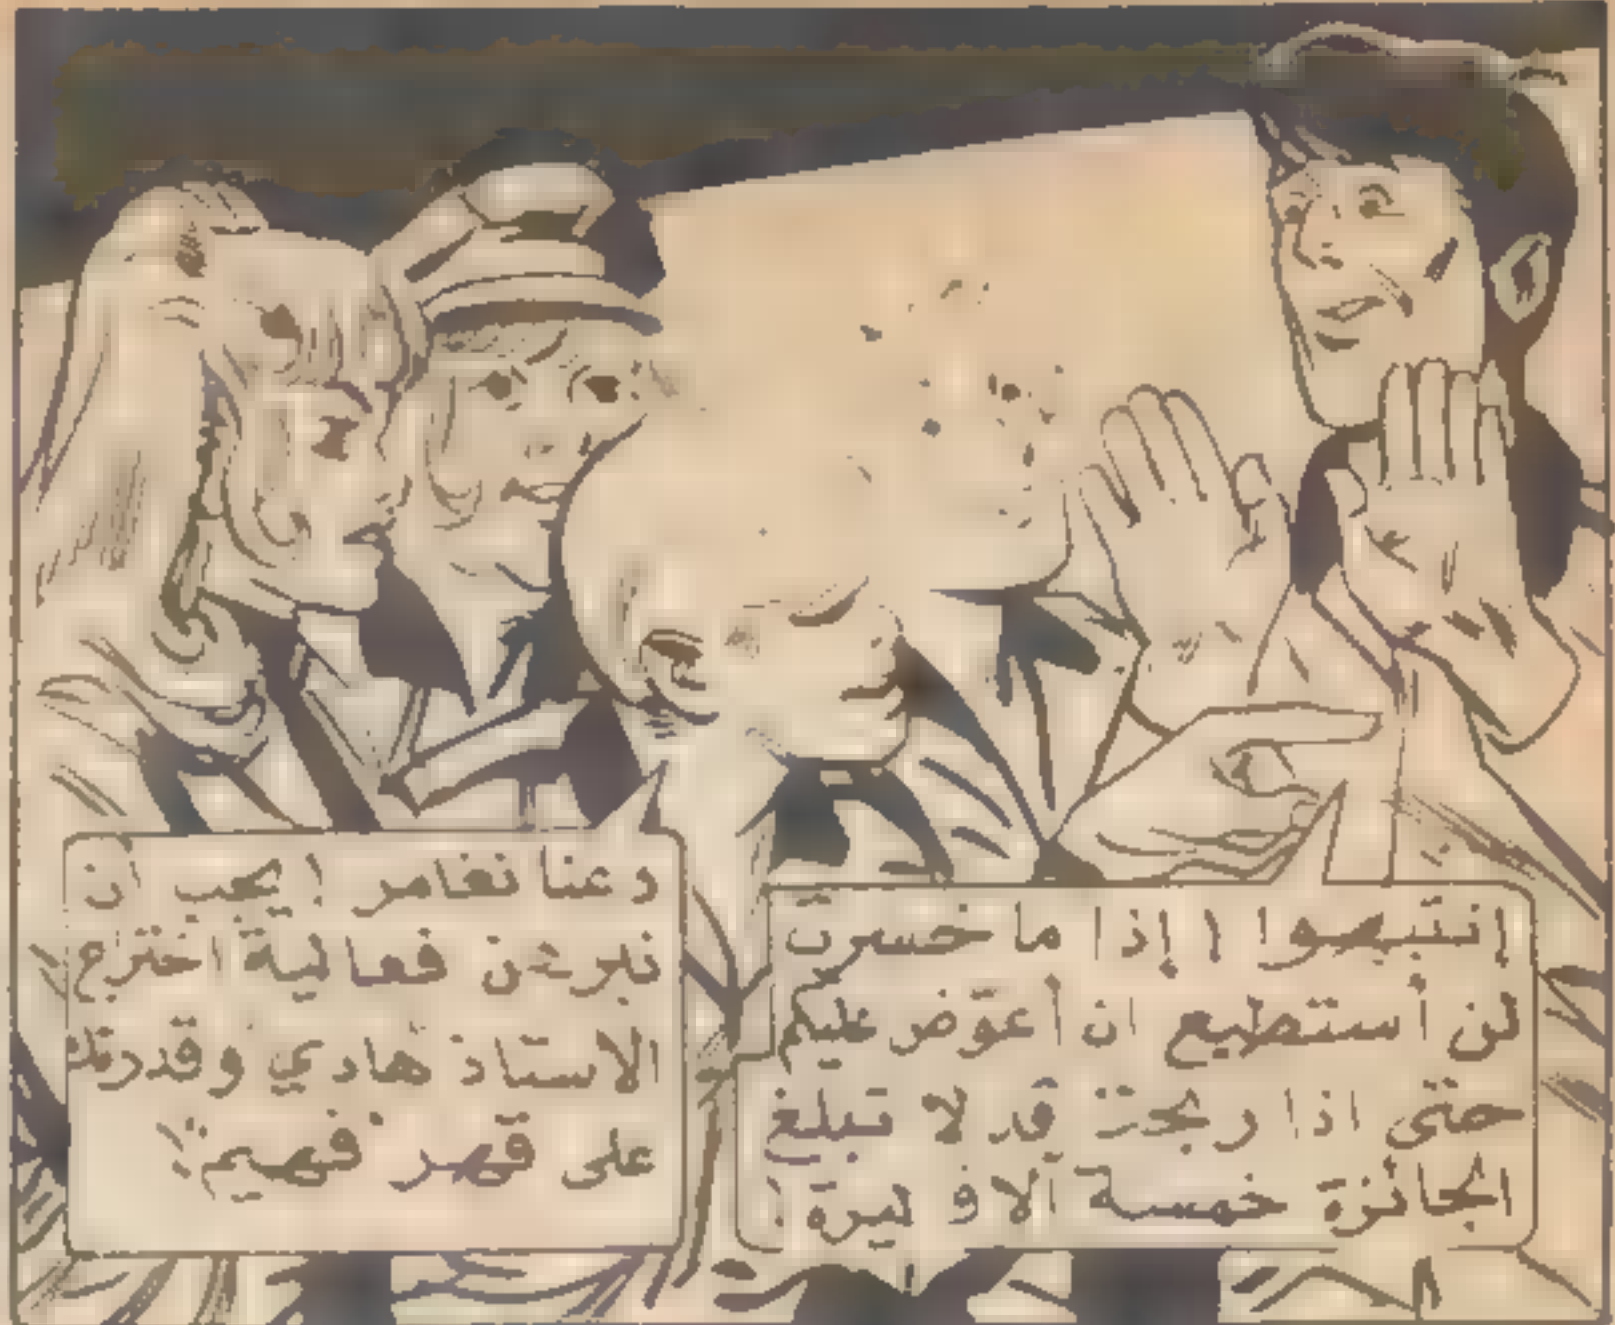 إنتبهوا ! إذا ما خسرت
لن أستطيع ان أعوّض عليكم
حتى اذا ربحت قد لا تبلغ
الجائزة خمسة آلاف ليرة !
دعنا نغامر ! يجب ان
نبرهن فعالية اختراع
الاستاذ هادي وقدرته
على قهر "فهيم"!